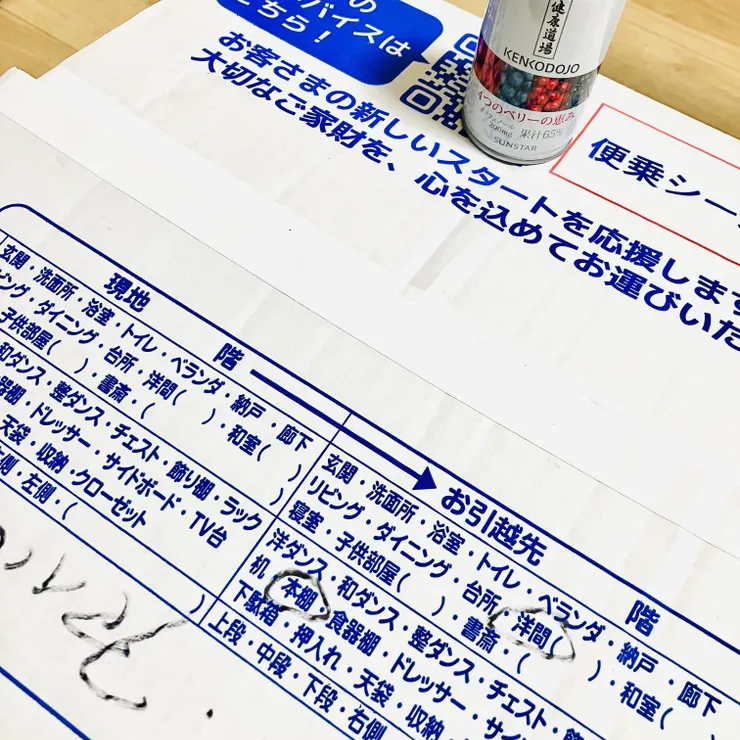 の
バイスは
こちら!
お客さまの新しいスタートを応援します
大切なご家財を、心を込めてお運びいた
健康道場
KENKODOJO
4つのベリーの恵み
ポリフェノール
200mg 果汁65%
SUNSTAR
便乗シー
現地
階
玄関・洗面所・浴室・トイレ・ベランダ・納戸・廊下
ビング・ダイニング・台所・洋間( )・和室( )
子供部屋( )・書斎・( )
和ダンス・整ダンス・チェスト・飾り棚・ラック
器棚・ドレッサー・サイドボード・TV台
天袋・収納・クローゼット
側・左側・( )
お引越先
階
玄関・洗面所・浴室・トイレ・ベランダ・納戸・廊下
リビング・ダイニング・台所・洋間( )・和室(
寝室・子供部屋( )・書斎・(
洋ダンス・和ダンス・整ダンス・チェスト・飾
机・本棚・食器棚・ドレッサー・サイ
下駄箱・押入れ・天袋・収納
上段・中段・下段・右側